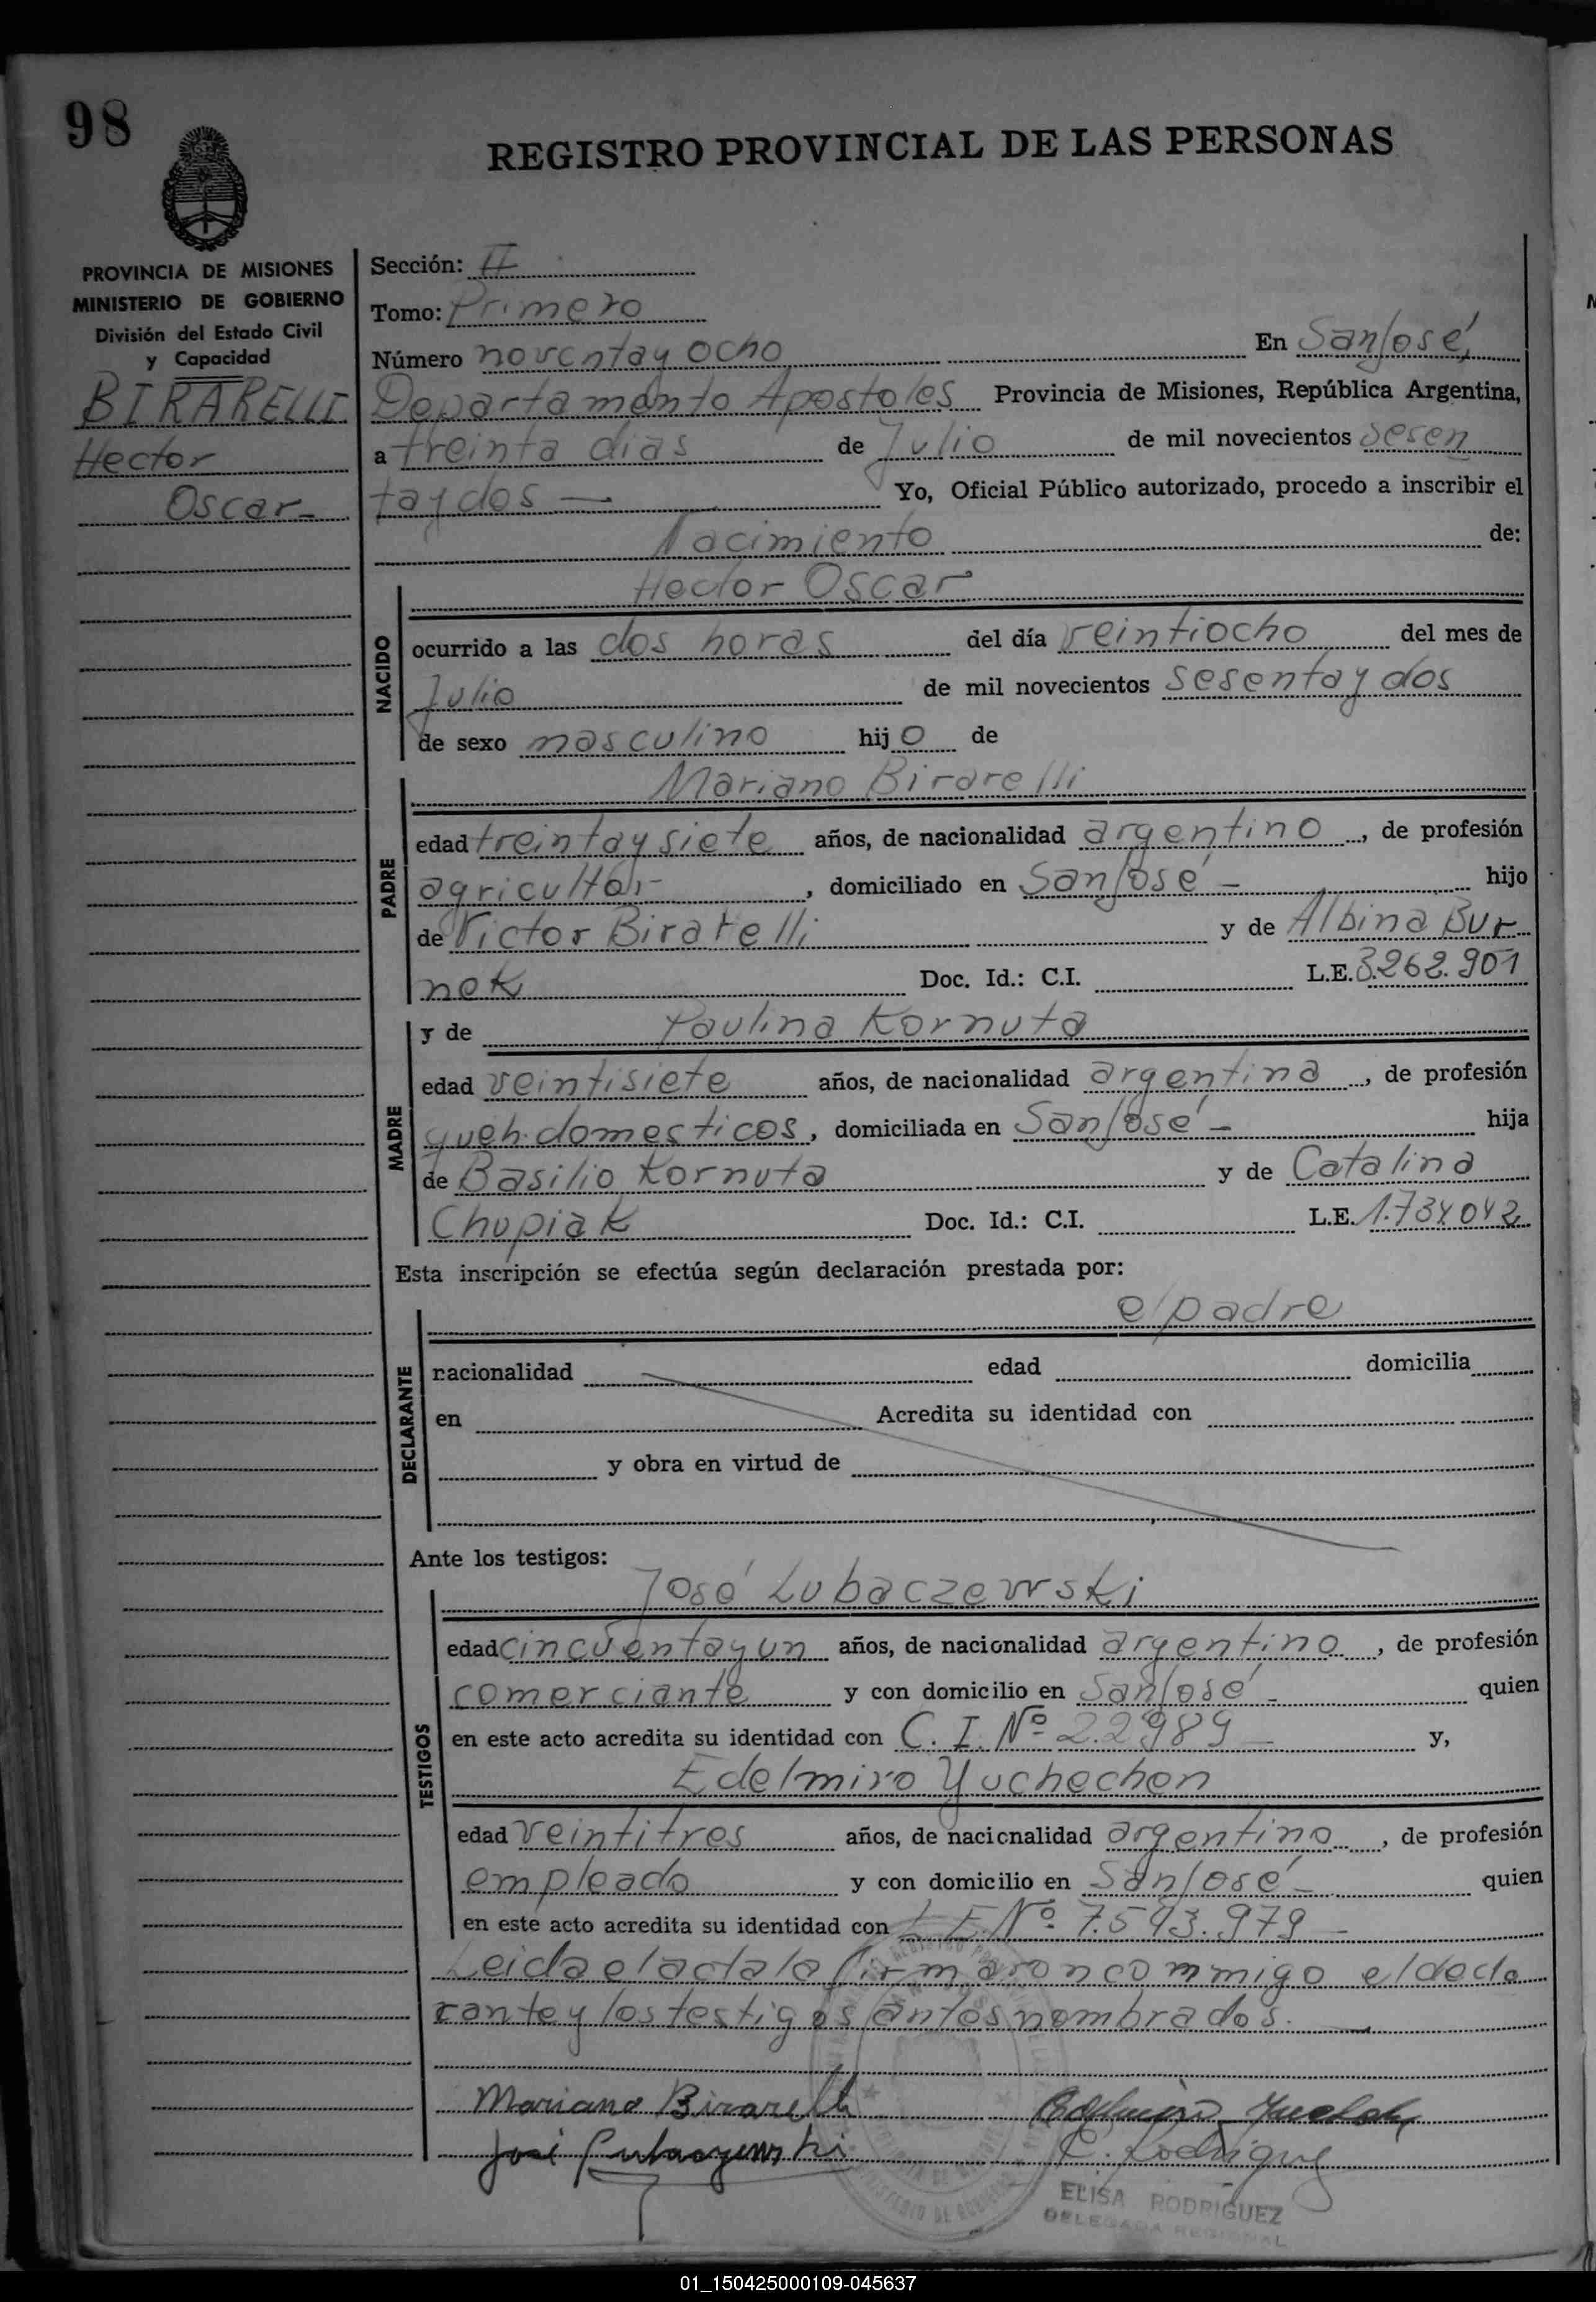 98
REGISTRO PROVINCIAL DE LAS PERSONAS
PROVINCIA DE MISIONES
MINISTERIO DE GOBIERNO
División del Estado Civil
y Capacidad
BIRARELLI
Hector
Oscar-
Sección: II
Tomo: Primero
Número noventa y ocho En San José,
Departamento Apostoles Provincia de Misiones, República Argentina,
a treinta dias de Julio de mil novecientos sesen
ta y dos — Yo, Oficial Público autorizado, procedo a inscribir el
Nacimiento de:
NACIDO
Hector Oscar
ocurrido a las dos horas del día veintiocho del mes de
Julio de mil novecientos sesenta y dos
de sexo masculino hijo de
PADRE
Mariano Birarelli
edad treinta y siete años, de nacionalidad argentino, de profesión
agricultor, domiciliado en San José - hijo
de Victor Birarelli y de Albina Bur
nek Doc. Id.: C.I. L.E. 3.262.901
MADRE
y de Paulina Kornuta
edad veintisiete años, de nacionalidad argentina, de profesión
queh. domesticos, domiciliada en San José - hija
de Basilio Kornuta y de Catalina
Chupiak Doc. Id.: C.I. L.E. 1.734.042
Esta inscripción se efectúa según declaración prestada por:
DECLARANTE
el padre
nacionalidad edad domicilia
en Acredita su identidad con
y obra en virtud de
Ante los testigos:
TESTIGOS
José Lubaczewski
edad cincuenta y un años, de nacionalidad argentino, de profesión
comerciante y con domicilio en San José - quien
en este acto acredita su identidad con C. I. Nº 22989 - y,
Edelmiro Yuchechen
edad veintitres años, de nacionalidad argentino, de profesión
empleado y con domicilio en San José - quien
en este acto acredita su identidad con L E. Nº 7.593.979 -
Leida el acta la firmaron commigo el decla
rante y los testigos antes nombrados.
Mariano Birarelli
José Lubaczewski
E. Rodriguez
ELISA RODRIGUEZ
DELEGADA REGIONAL
01_150425000109-045637